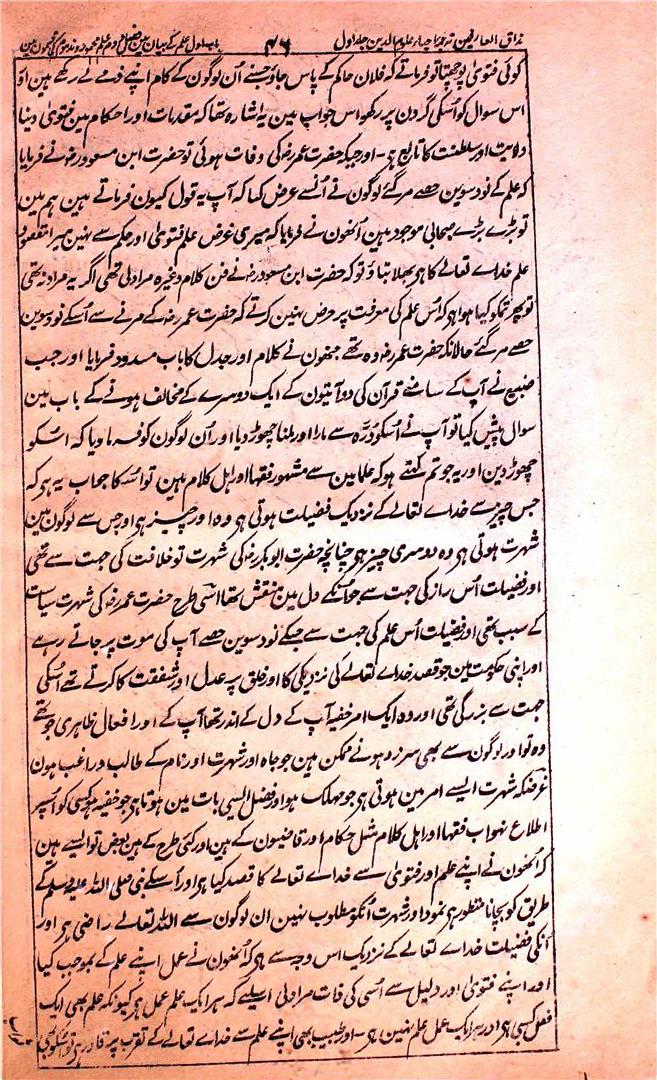 مذاق العارفین ترجمہ احیاء علوم الدین جلد اول ۴۶ باب اول علم کے بیان میں فصل دوم علم محمود و مذموم کی
کوئی فتویٰ پوچھتا تو فرماتے کہ فلان حاکم کے پاس جاؤ جسنے اُن لوگون کے کام اپنے ذمے لے رکھے ہین اور
اس سوال کو اُسکی گردن پر رکھو اس جواب مین یہ اشارہ تھا کہ مقدمات اور احکام مین فتویٰ دینا
ولایت اور سلطنت کا تابع ہی ۔ اور جبکہ حضرت عمر رضہ کی وفات ہوئی تو حضرت ابن مسعود رضہ نے فرمایا
کہ علم کے نو دسوین حصے مر گئے لوگون نے اُنسے عرض کیا کہ آپ یہ قول کیون فرماتے ہین ہم مین
تو بڑے بڑے صحابی موجود ہین اُنھون نے فرمایا کہ میری غرض علم فتویٰ اور حکم سے نہین میرا مقصود
علم خداے تعالے کا ہی بھلا بتاؤ تو کہ حضرت ابن مسعود رضہ نے فن کلام وغیرہ مراد لی تھی اگر یہ مراد نہ تھی
تو پھر تمکو کیا ہوا ہی کہ اُس علم کی معرفت پر حرض نہین کرتے کہ حضرت عمر رضہ کے مرنے سے اُسکے نو دسوین
حصے مر گئے حالانکہ حضرت عمر رضہ وہ تھے جنھون نے کلام اور جدل کا باب مسدود فرمایا اور جب
ضبیع نے آپ کے سامنے قرآن کی دو آیتون کے ایک دوسرے کے مخالف ہونے کے باب مین
سوال پیش کیا تو آپ نے اُسکو دُرّہ سے مارا اور ملنا چھوڑ دیا اور اُن لوگون کو فرما دیا کہ اُسکو
چھوڑ دین اور یہ جو تم کہتے ہو کہ علما مین سے مشہور فقہا اور اہل کلام ہین تو اسکا جواب یہ ہی کہ
جس چیز سے خداے تعالے کے نزدیک فضیلت ہوتی ہی وہ اور چیز ہی اور جس سے لوگون مین
شہرت ہوتی ہی وہ دوسری چیز ہی چنانچہ حضرت ابوبکر رضہ کی شہرت تو خلافت کی جہت سے تھی
اور فضیلت اُس راز کی جہت سے جو اُنکے دل مین منقش تھا اسی طرح حضرت عمر رضہ کی شہرت سیاست
کے سبب تھی اور فضیلت اُس علم کی جہت سے جسکے نو دسوین حصے آپ کی موت پر جاتے رہے
اور اپنی حکومت مین جو قصد خداے تعالے کی نزدیکی کا اور خلق پر عدل اور شفقت کا کرتے تھے اُسکی
جہت سے بزرگی تھی اور وہ ایک امر خفیہ آپ کے دل کے اندر تھا آپ کے اور افعال ظاہری جو تھے
وہ تو اور لوگون سے بھی سرزد ہونے ممکن ہین جو جاہ اور شہرت اور نام کے طالب و راغب ہون
غرضکہ شہرت ایسے امر مین ہوتی ہی جو مہلک ہو اور فضل ایسی بات مین ہوتا ہی جو خفیہ ہو کسی کو اُسپر
اطلاع نہو اب فقہا اور اہل کلام مثل حکام اور قاضیون کے ہین اور کئی طرح کے ہین بعض تو ایسے ہین
کہ اُنھون نے اپنے علم اور فتویٰ سے خداے تعالے کا قصد کیا ہی اور اُسکے نبی صلی اللہ علیہ وسلم کے
طریق کو بچانا منظور ہی نمود اور شہرت اُنکو مطلوب نہین ان لوگون سے اللہ تعالے راضی ہی اور
اُنکی فضیلت خداے تعالے کے نزدیک اس وجہ سے ہی کہ اُنھون نے عمل اپنے علم کے بموجب کیا
اور اپنے فتویٰ اور دلیل سے اُسی کی ذات مراد لی اسلیے کہ ہر ایک علم عمل ہی کیونکہ علم بھی ایک
فعل کسبی ہی اور ہر ایک عمل علم نہین ہی ۔ اور طبیب بھی اپنے علم سے خداے تعالے کے تقرب پر قادر ہی تو اُسکو بھی